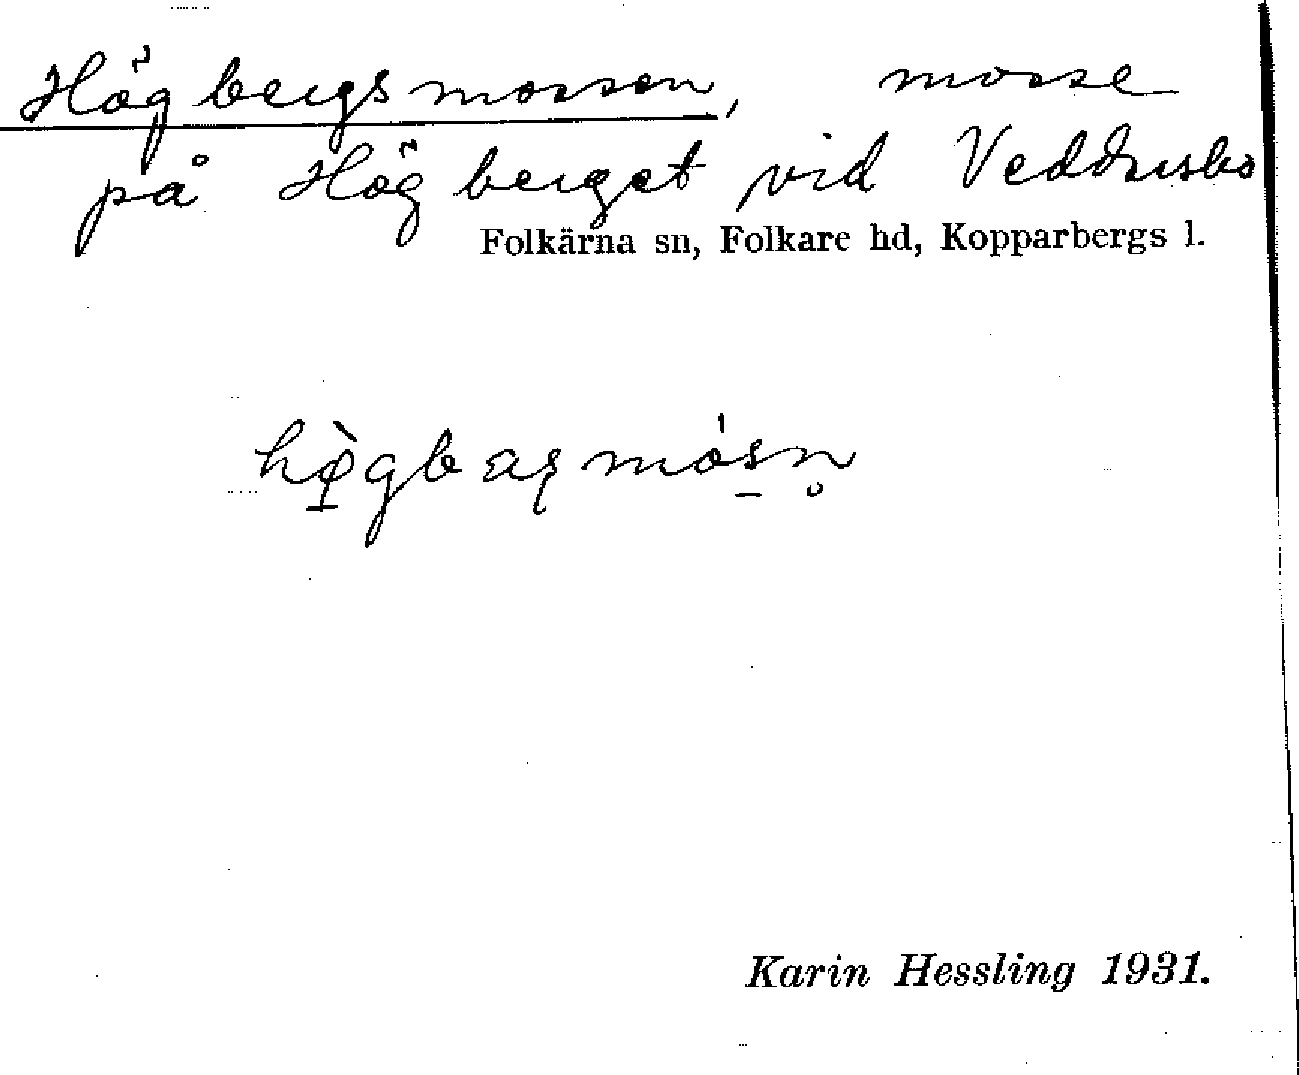 Högbergsmossen, mosse
på Högberget vid Veddarsbo
Folkärna sn, Folkare hd, Kopparbergs l.
Karin Hessling 1931.